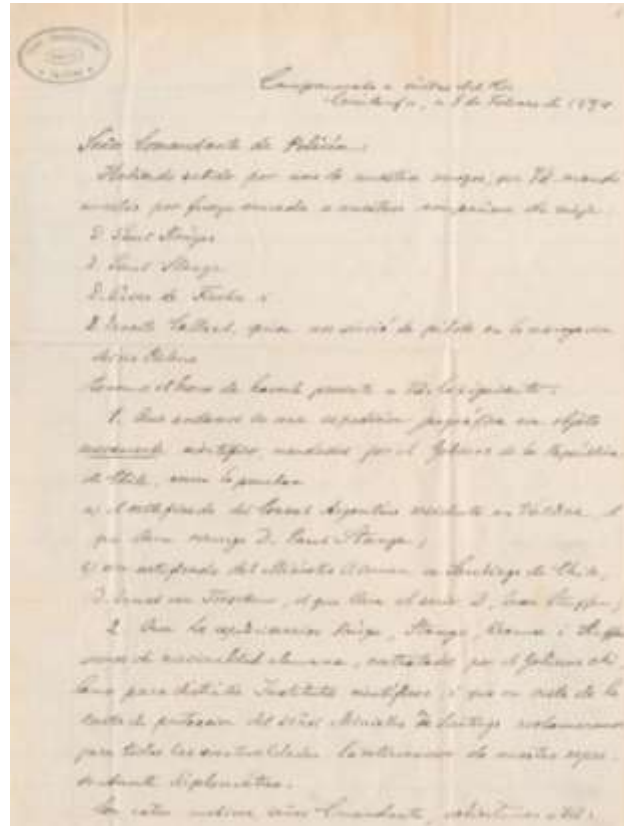 Campamento a orillas del Rio
, a 8 de Febrero de 1894
Señor Comandante de Policía:
Habiendo sabido por uno de nuestros mozos, que Vd. mandó
por fuerza armada a nuestros compañeros de viaje
D. Paul Krüger
D. Paul Stange
D. de Fischer i
D. , quien nos sirvió de piloto en la navegacion
del rio Palena
el honor de hacerle presente a Vd. lo siguiente:
1. Que andamos en una espedicion jeográfica con objeto
meramente científico, mandados por el Gobierno de la República
de Chile, como lo prueban
a) el certificado del Consul Argentino residente en Valdivia, el
que lleva consigo D. Paul Stange;
b) un certificado del Ministro Aleman en Santiago de Chile,
D. , el que lleva el señor D. Juan Steffen;
2. Que los espedicionarios Krüger, Stange, i Steffen
somos de nacionalidad alemana, contratados por el Gobierno chi
leno para distintos Institutos científicos i que en vista de la
carta de proteccion del señor Ministro de Santiago reclamaremos
para todas las eventualidades la intervencion de nuestro repre-
sentante diplomático.
Por estos motivos, señor Comandante, solicitamos a Vd.: